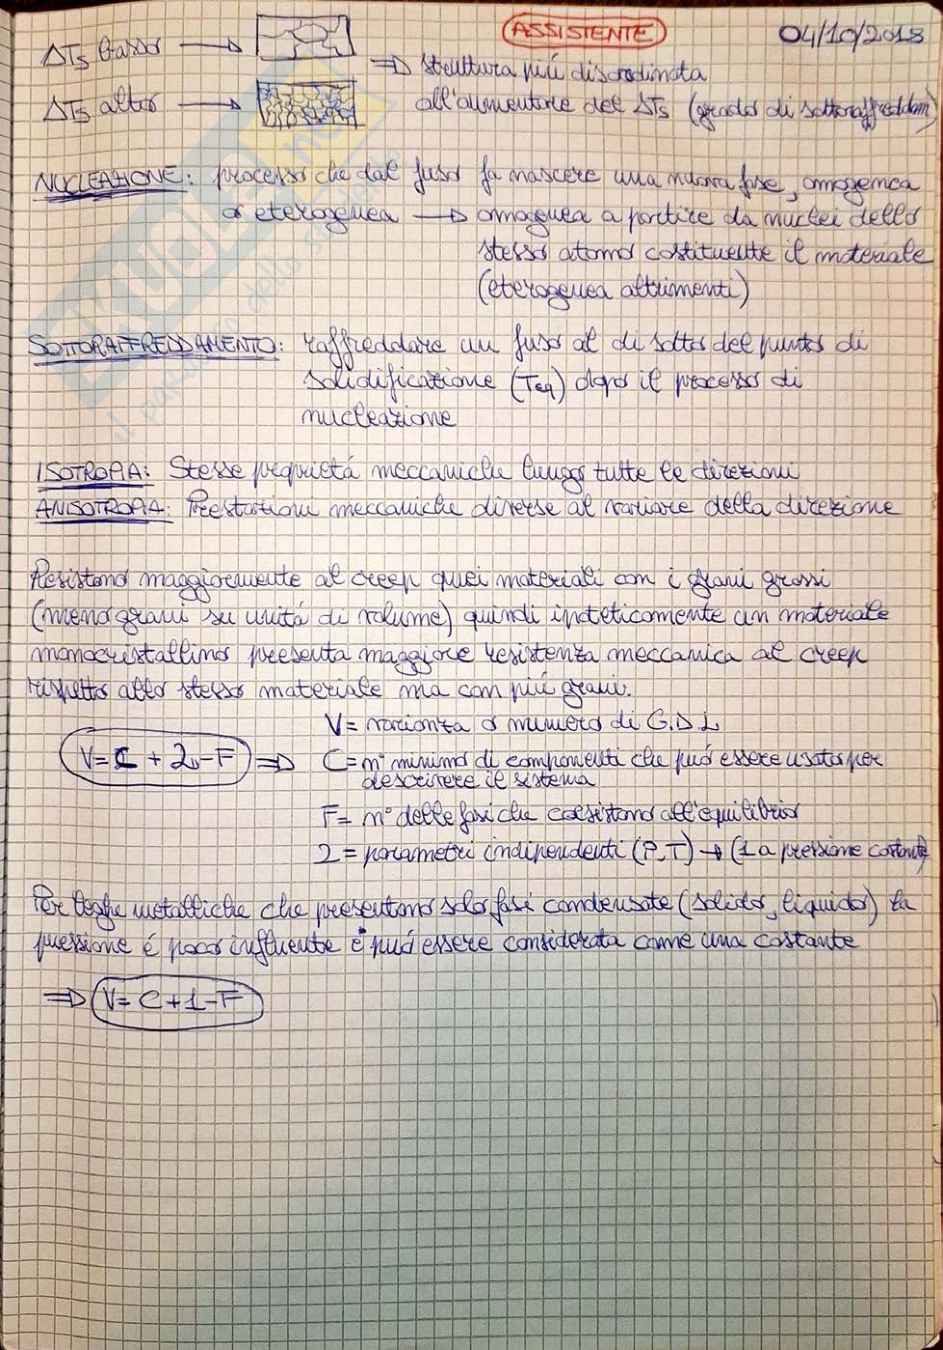 ASSISTENTE 04/10/2018
ΔTs basso →
⇒ struttura più disordinata
ΔTs alto → all'aumentare del ΔTs (grado di sottoraffreddam)
NUCLEAZIONE: processo che dal fuso fa nascere una nuova fase, omogenea
o eterogenea → omogenea a partire da nuclei dello
stesso atomo costituente il materiale
(eterogenea altrimenti)
SOTTORAFFREDDAMENTO: raffreddare un fuso al di sotto del punto di
solidificazione (Teq) dopo il processo di
nucleazione
ISOTROPIA: Stesse proprietá meccaniche lungo tutte le direzioni
ANISOTROPIA: Prestazioni meccaniche diverse al variare della direzione
Resistono maggiormente al creep quei materiali con i grani grossi
(meno grani su unitá di volume) quindi ipoteticamente un materiale
monocristallino presenta maggiore resistenza meccanica al creep
rispetto allo stesso materiale ma con più grani.
V = varianza o numero di G.D.L
V = C + 2 - F ⇒ C = n° minimo di componenti che puó essere usato per
descrivere il sistema
F = n° delle fasi che coesistono all'equilibrio
2 = parametri indipendenti (P,T) → (1 a pressione costante)
Per leghe metalliche che presentano solo fasi condensate (solido, liquido) la
pressione é poco influente e puó essere considerata come una costante
⇒ V = C + 1 - F